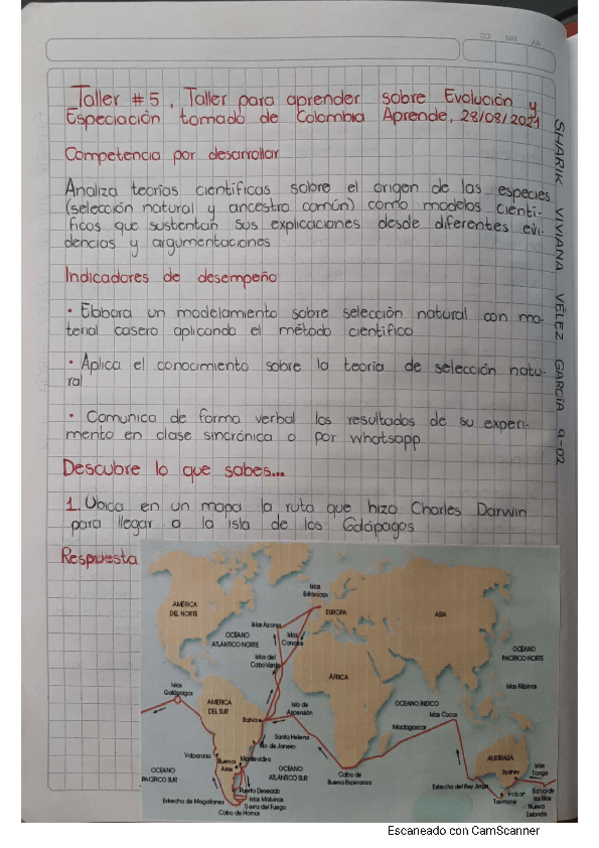 DD MM AA
Taller #5, Taller para aprender sobre Evolución y
Especiación tomado de Colombia Aprende, 28/08/2021
Competencia por desarrollar
Analiza teorías científicas sobre el origen de las especies
(selección natural y ancestro común) como modelos cientí-
ficos que sustentan sus explicaciones desde diferentes evi-
dencias y argumentaciones
Indicadores de desempeño
• Elabora un modelamiento sobre selección natural con ma-
terial casero aplicando el método científico
• Aplica el conocimiento sobre la teoría de selección natu-
ral
• Comunica de forma verbal los resultados de su experi-
mento en clase sincrónica o por whatsapp
Descubre lo que sabes...
1. Ubica en un mapa la ruta que hizo Charles Darwin
para llegar a la isla de las Galápagos
Respuesta
SHARIK VIVIANA VÉLEZ GARCÍA 9-02
AMÉRICA
DEL NORTE
Islas
Británicas
EUROPA
ASIA
Islas Azores
OCÉANO
ATLÁNTICO NORTE
Islas
Canarias
OCÉANO
PACIFICO NORTE
Islas del
Cabo Verde
ÁFRICA
Islas
Galápagos
Islas Filipinas
AMÉRICA
DEL SUR
Isla de
Ascensión
OCÉANO INDICO
Bahía
Islas Cocos
Madagascar
Santa Helena
Río de Janeiro
Valparaíso
Buenos
Aires
Montevideo
AUSTRALIA
OCÉANO
PACIFICO SUR
OCÉANO
ATLÁNTICO SUR
Cabo de
Buena Esperanza
Sydney
Islas
Tonga
Puerto Deseado
Estrecho del Rey Jorge
Hobart
Bahía de
las Islas
Estrecho de Magallanes
Islas Malvinas
Tierra del Fuego
Tasmania
Nueva
Zelanda
Cabo de Hornos
Escaneado con CamScanner